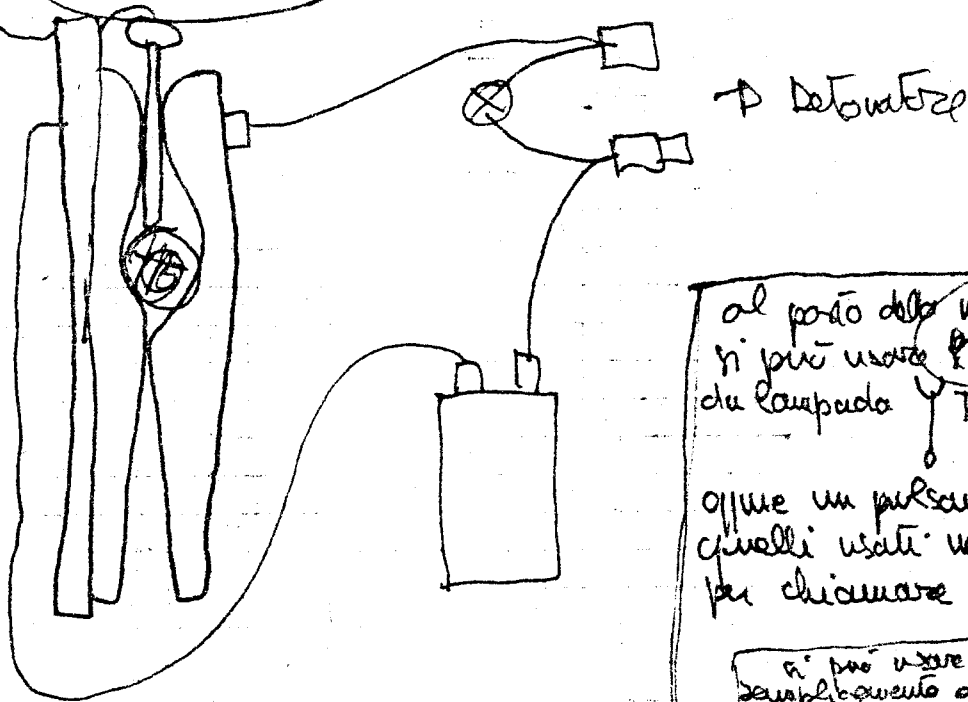 → Detonatore
al posto dela
si può usare
da lampada
oppure un
quelli usati
per chiamare
si può usare
semplicemente